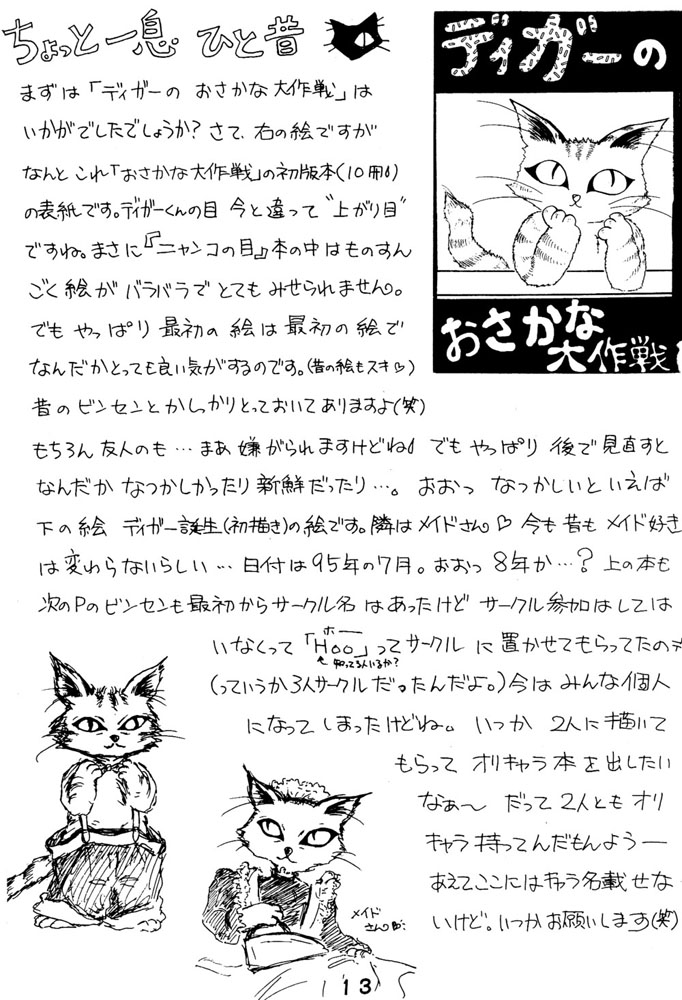 ちょっと一息 ひと昔
ディガーの
おさかな
大作戦
まずは「ディガーの おさかな大作戦」は
いかがでしたでしょうか? さて、右の絵ですが
なんと これ「おさかな大作戦」の初版本(10冊)
の表紙です。ディガーくんの目 今と違って "上がり目"
ですね。まさに『ニャンコの目』本の中はものすん
ごく絵が バラバラで とても みせられません。
でも やっぱり 最初の 絵は 最初の 絵で
なんだかとっても良い気がするのです。(昔の絵もスキ♡)
昔の ビンセンとか しっかりとっておいてありますよ(笑)
もちろん 友人のも…まあ 嫌がられますけどね でも やっぱり 後で 見直すと
なんだか なつかしかったり 新鮮だったり…。 おおっ なつかしいといえば
下の絵 ディガー誕生(初描き)の絵です。隣は メイドさん♡ 今も 昔も メイド好き
は 変わらないらしい… 日付は95年の7月。おおっ 8年か…? 上の本も
次のPのビンセンも最初からサークル名 はあったけど サークル参加はしては
いなくって「Hoo」ってサークル に 置かせてもらってたの
ホー
知ってる人いるか?
(っていうか3人サークルだったんだよ。)今は みんな個人
になって しまったけどね。 いつか 2人に 描いて
もらって オリキャラ本を出したい
なぁ〜 だって 2人とも オリ
キャラ 持ってんだもんよう ー
あえてここにはキャラ名載せな
いけど。いつかお願いします(笑)
メイド
さん
13